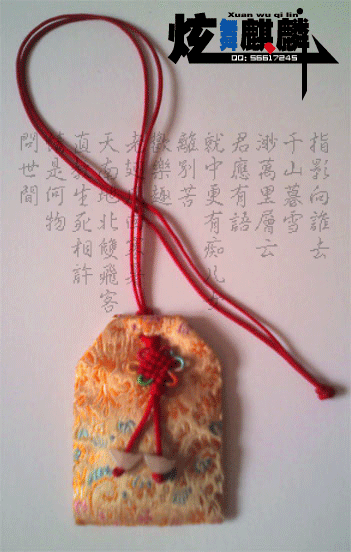 Xuan wu qi lin
炫舞麒麟
QQ: 56617245
問世間
是何物
直教生死相許
天南地北雙飛客
老翅
歡樂趣
離別苦
就中更有痴儿
君應有語
渺萬里層云
千山暮雪
指影向誰去